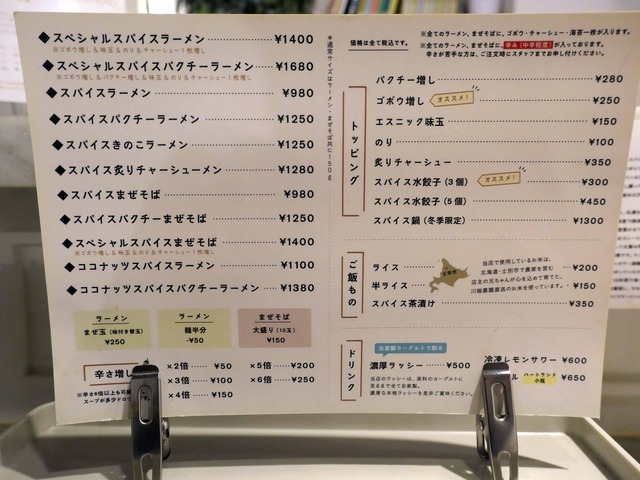 ◆スペシャルスパイスラーメン ¥1400
※ゴボウ増し&味玉&のり&チャーシュー1枚増し
◆スペシャルスパイスパクチーラーメン ¥1680
※ゴボウ増し&パクチー増し&味玉&のり&チャーシュー1枚増し
◆スパイスラーメン ¥980
◆スパイスパクチーラーメン ¥1250
◆スパイスきのこラーメン ¥1250
◆スパイス炙りチャーシューメン ¥1280
◆スパイスまぜそば ¥980
◆スパイスパクチーまぜそば ¥1250
◆スペシャルスパイスまぜそば ¥1400
※ゴボウ増し&味玉&のり&チャーシュー1枚増し
◆ココナッツスパイスラーメン ¥1100
◆ココナッツスパイスパクチーラーメン ¥1380
*通常サイズはラーメン・まぜそば共に150g
ラーメン
まぜ玉(味付き替玉)
¥250
ラーメン
麺半分
-¥50
まぜそば
大盛り(1.5玉)
¥150
辛さ増し
×2倍 ¥50
×3倍 ¥100
×4倍 ¥150
×5倍 ¥200
×6倍 ¥250
※辛さ6倍以上も可能
スープが多少ドロ
価格は全て税込です。
※全てのラーメン、まぜそばに、ゴボウ・チャーシュー・海苔一枚が入ります。
※全てのラーメン、まぜそばに、辛み(中辛程度)が入っております。
辛さが苦手な方は、ご注文時にスタッフまでお申し付けください。
トッピング
パクチー増し ¥280
ゴボウ増し オススメ! ¥250
エスニック味玉 ¥150
のり ¥100
炙りチャーシュー ¥350
スパイス水餃子(3個) オススメ! ¥300
スパイス水餃子(5個) ¥450
スパイス鍋(冬季限定) ¥1300
ご飯もの
ライス ¥200
半ライス ¥150
スパイス茶漬け ¥350
士別市
当店で使用しているお米は、
北海道・士別市で農家を営む
店主の兄ちゃんが心を込めて育てた、
川越農園直送のお米を使っています。
ドリンク
自家製ヨーグルトで創る
濃厚ラッシー ¥500
当店のラッシーは、原料のヨーグルトに
至るまで全て自家製。
濃厚な本格ラッシーを是非ご賞味ください。
冷凍レモンサワー ¥600
ル ハートランド小瓶 ¥650